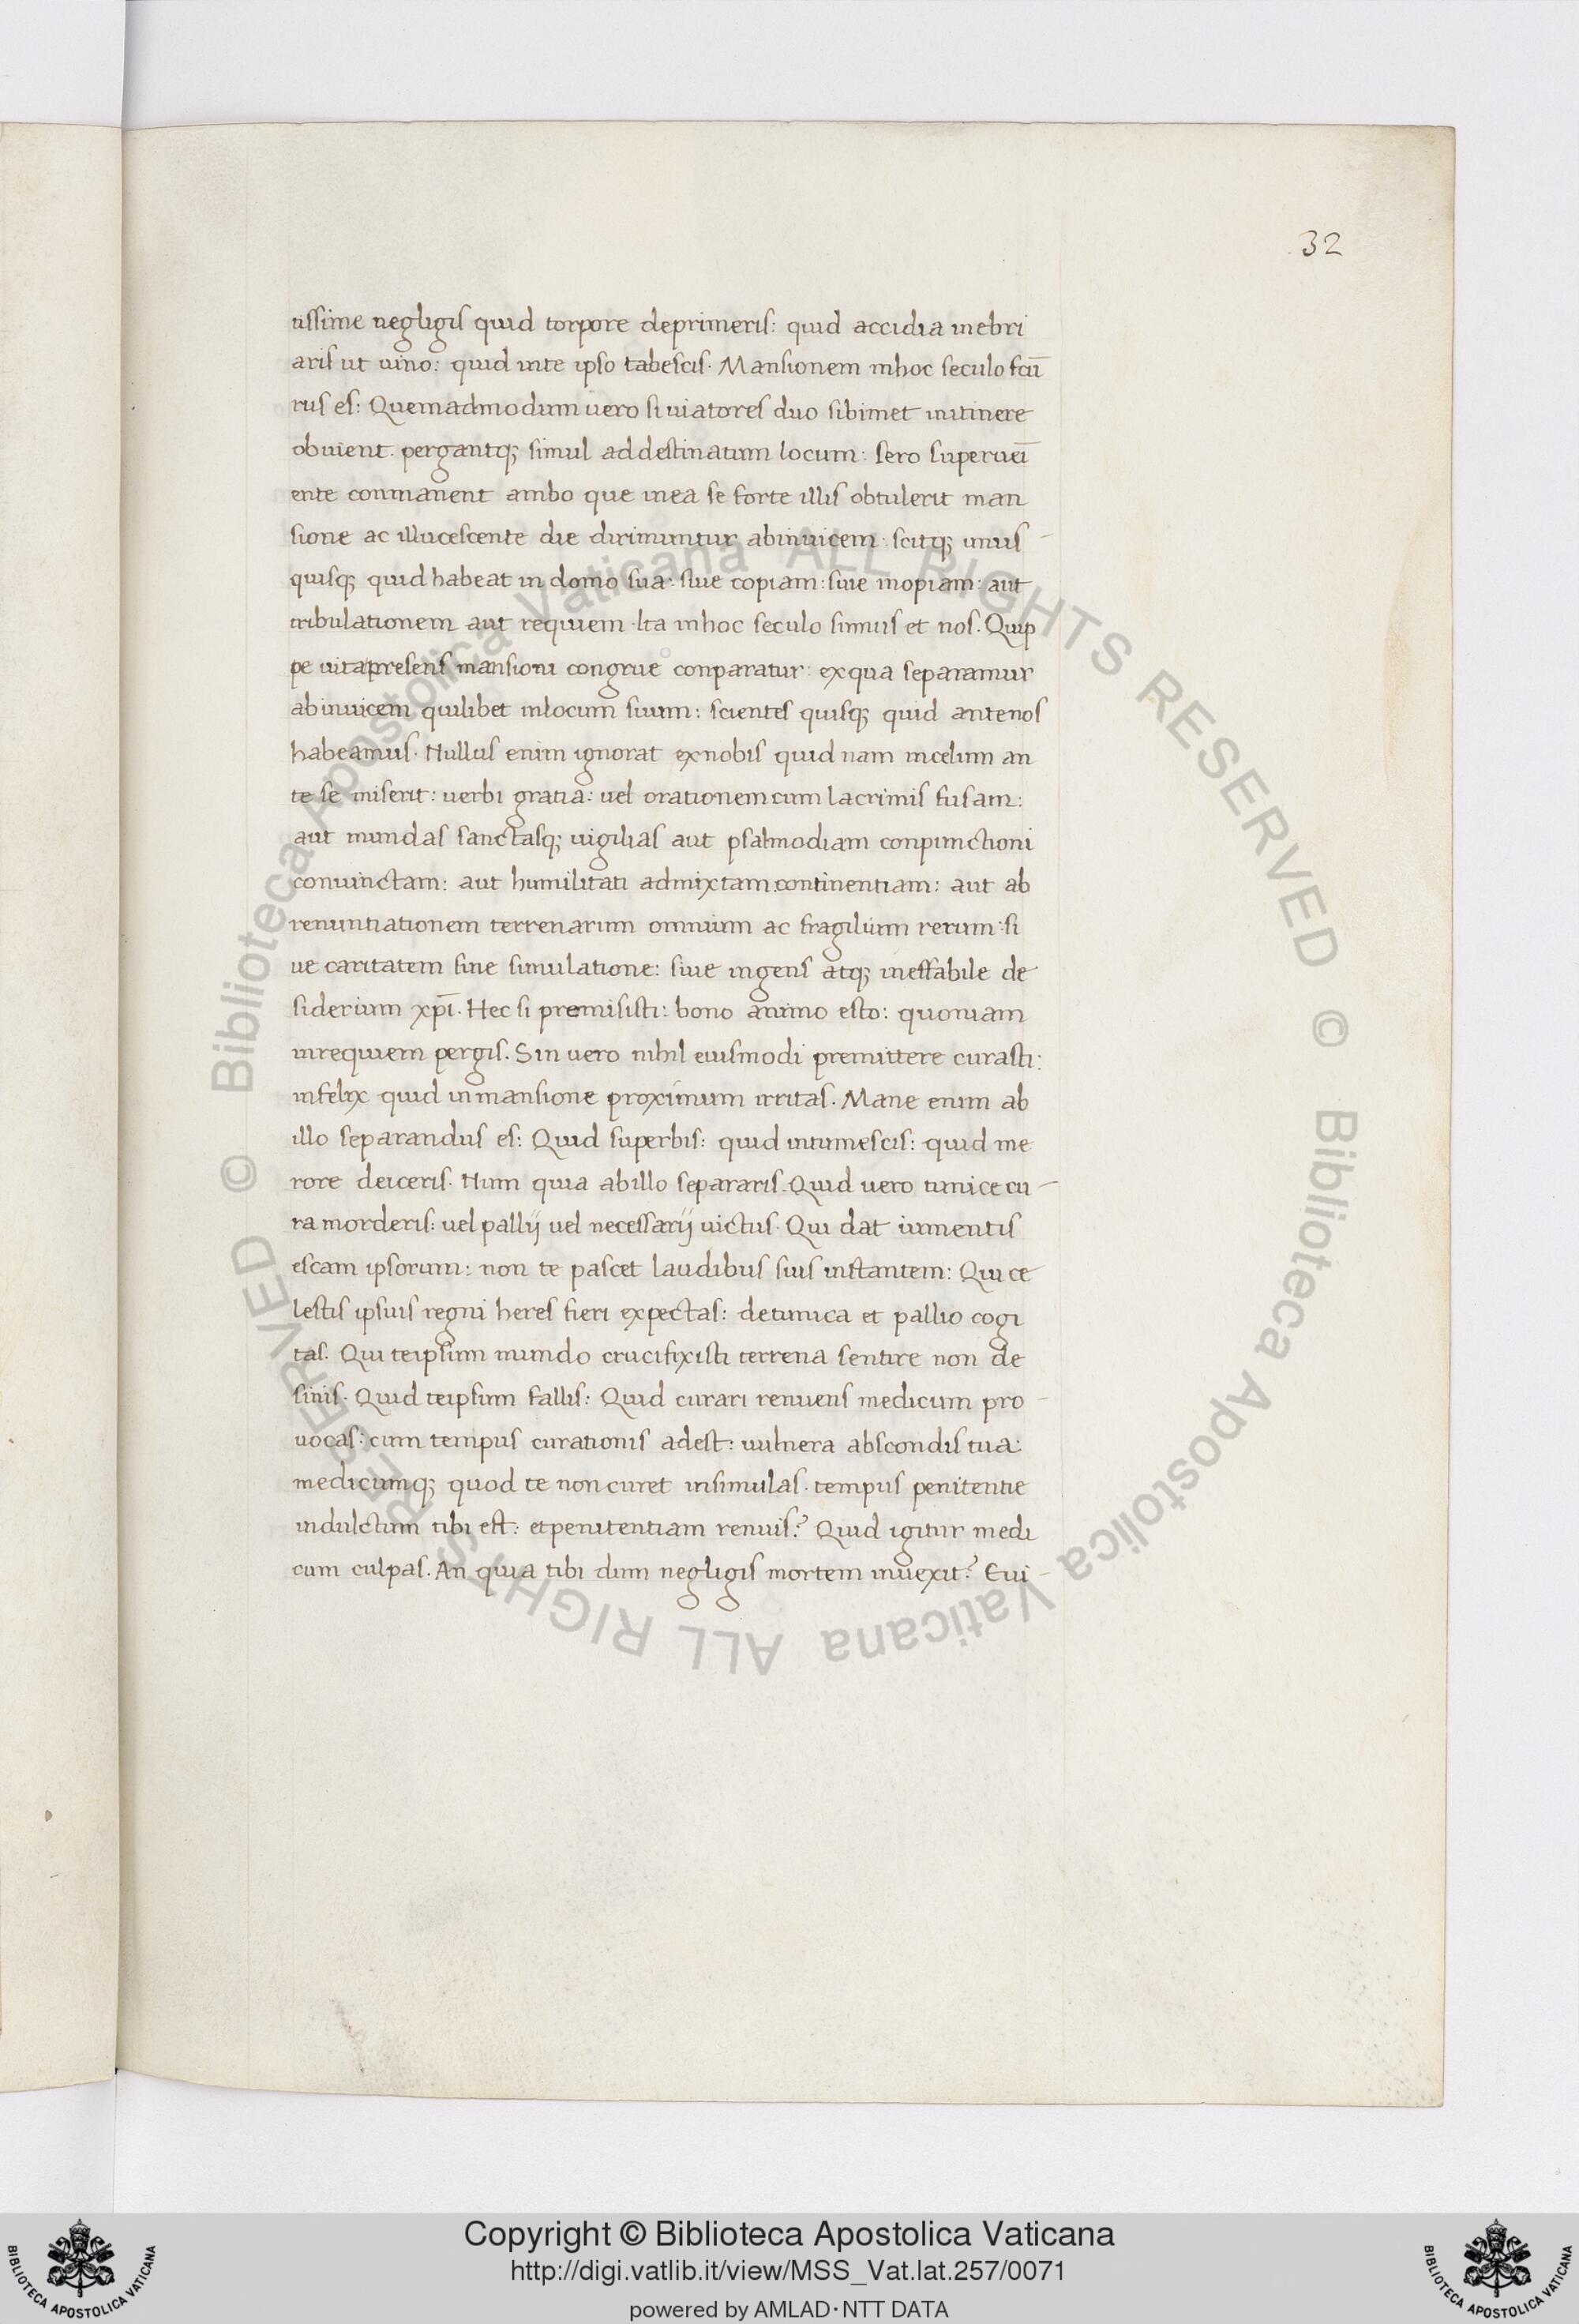 32
tissime negligis quid torpore deprimeris: quid accidia inebri
aris ut uino: quid inte ipso tabescis. Mansionem inhoc seculo fcū
rus es: Quemadmodum uero si uiatores duo sibimet initinere
obuient. pergantq; simul addestinatum locum: sero superueī
ente conmanent ambo que inea se forte illis obtulerit man
sione ac illucescente die dirimuntur abinuicem: scitq; unus
quisq; quid habeat in domo sua: siue copiam: siue inopiam: aut
tribulationem aut requiem. Ita inhoc seculo sumus et nos. Quip
pe uita presens mansioni congrue conparatur: exqua separamur
abinuicem quilibet inlocum suum: scientes quisq; quid antenos
habeamus. Nullus enim ignorat exnobis quid nam incelum an
te se miserit: uerbi gratia: uel orationem cum lacrimis fusam:
aut mundas sanctasq; uigilias aut psalmodiam conpunctioni
conuinctam: aut humilitati admixtam continentiam: aut ab
renuntiationem terrenarum omnium ac fragilium rerum: si
ue caritatem sine simulatione: siue ingens atq; ineffabile de
siderium xpī. Hec si premisisti: bono animo esto: quoniam
inrequiem pergis. Sin uero nihil eiusmodi premittere curasti:
infelix quid inmansione proximum irritas. Mane enim ab
illo separandus es: Quid superbis: quid intumescis: quid me
rore deiceris. Num quia abillo separaris. Quid uero tunice cu
ra morderis: uel pallij uel necessarij uictus. Qui dat iumentis
escam ipsorum: non te pascet laudibus suis instantem: Qui ce
lestis ipsius regni heres fieri expectas: detunica et pallio cogi
tas. Qui teipsum mundo crucifixisti terrena sentire non de
sinis. Quid teipsum fallis: Quid curari renuens medicum pro
uocas: cum tempus curationis adest: uulnera abscondis tua:
medicumq; quod te non curet insimulas. tempus penitentie
indulctum tibi est: et penitentiam renuis? Quid igitur medi
cum culpas. An quia tibi dum negligis mortem inuexit? Eui
© Biblioteca Apostolica Vaticana ALL RIGHTS RESERVED © Biblioteca Apostolica Vaticana ALL RIGHTS RESERVED
BIBLIOTECA APOSTOLICA VATICANA
Copyright © Biblioteca Apostolica Vaticana
http://digi.vatlib.it/view/MSS_Vat.lat.257/0071
powered by AMLAD·NTT DATA
BIBLIOTECA APOSTOLICA VATICANA